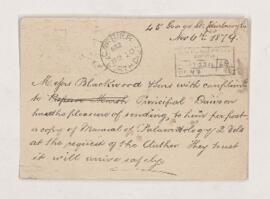 45 George St. Edinburgh
Nov 6th 1879
Messrs Blackwood & Sons with compliments
to Principal Dawson
has the pleasure of sending to him per post
a copy of Manual of Palaeontology 2 Vols
at the request of the Author They trust
it will arrive safely